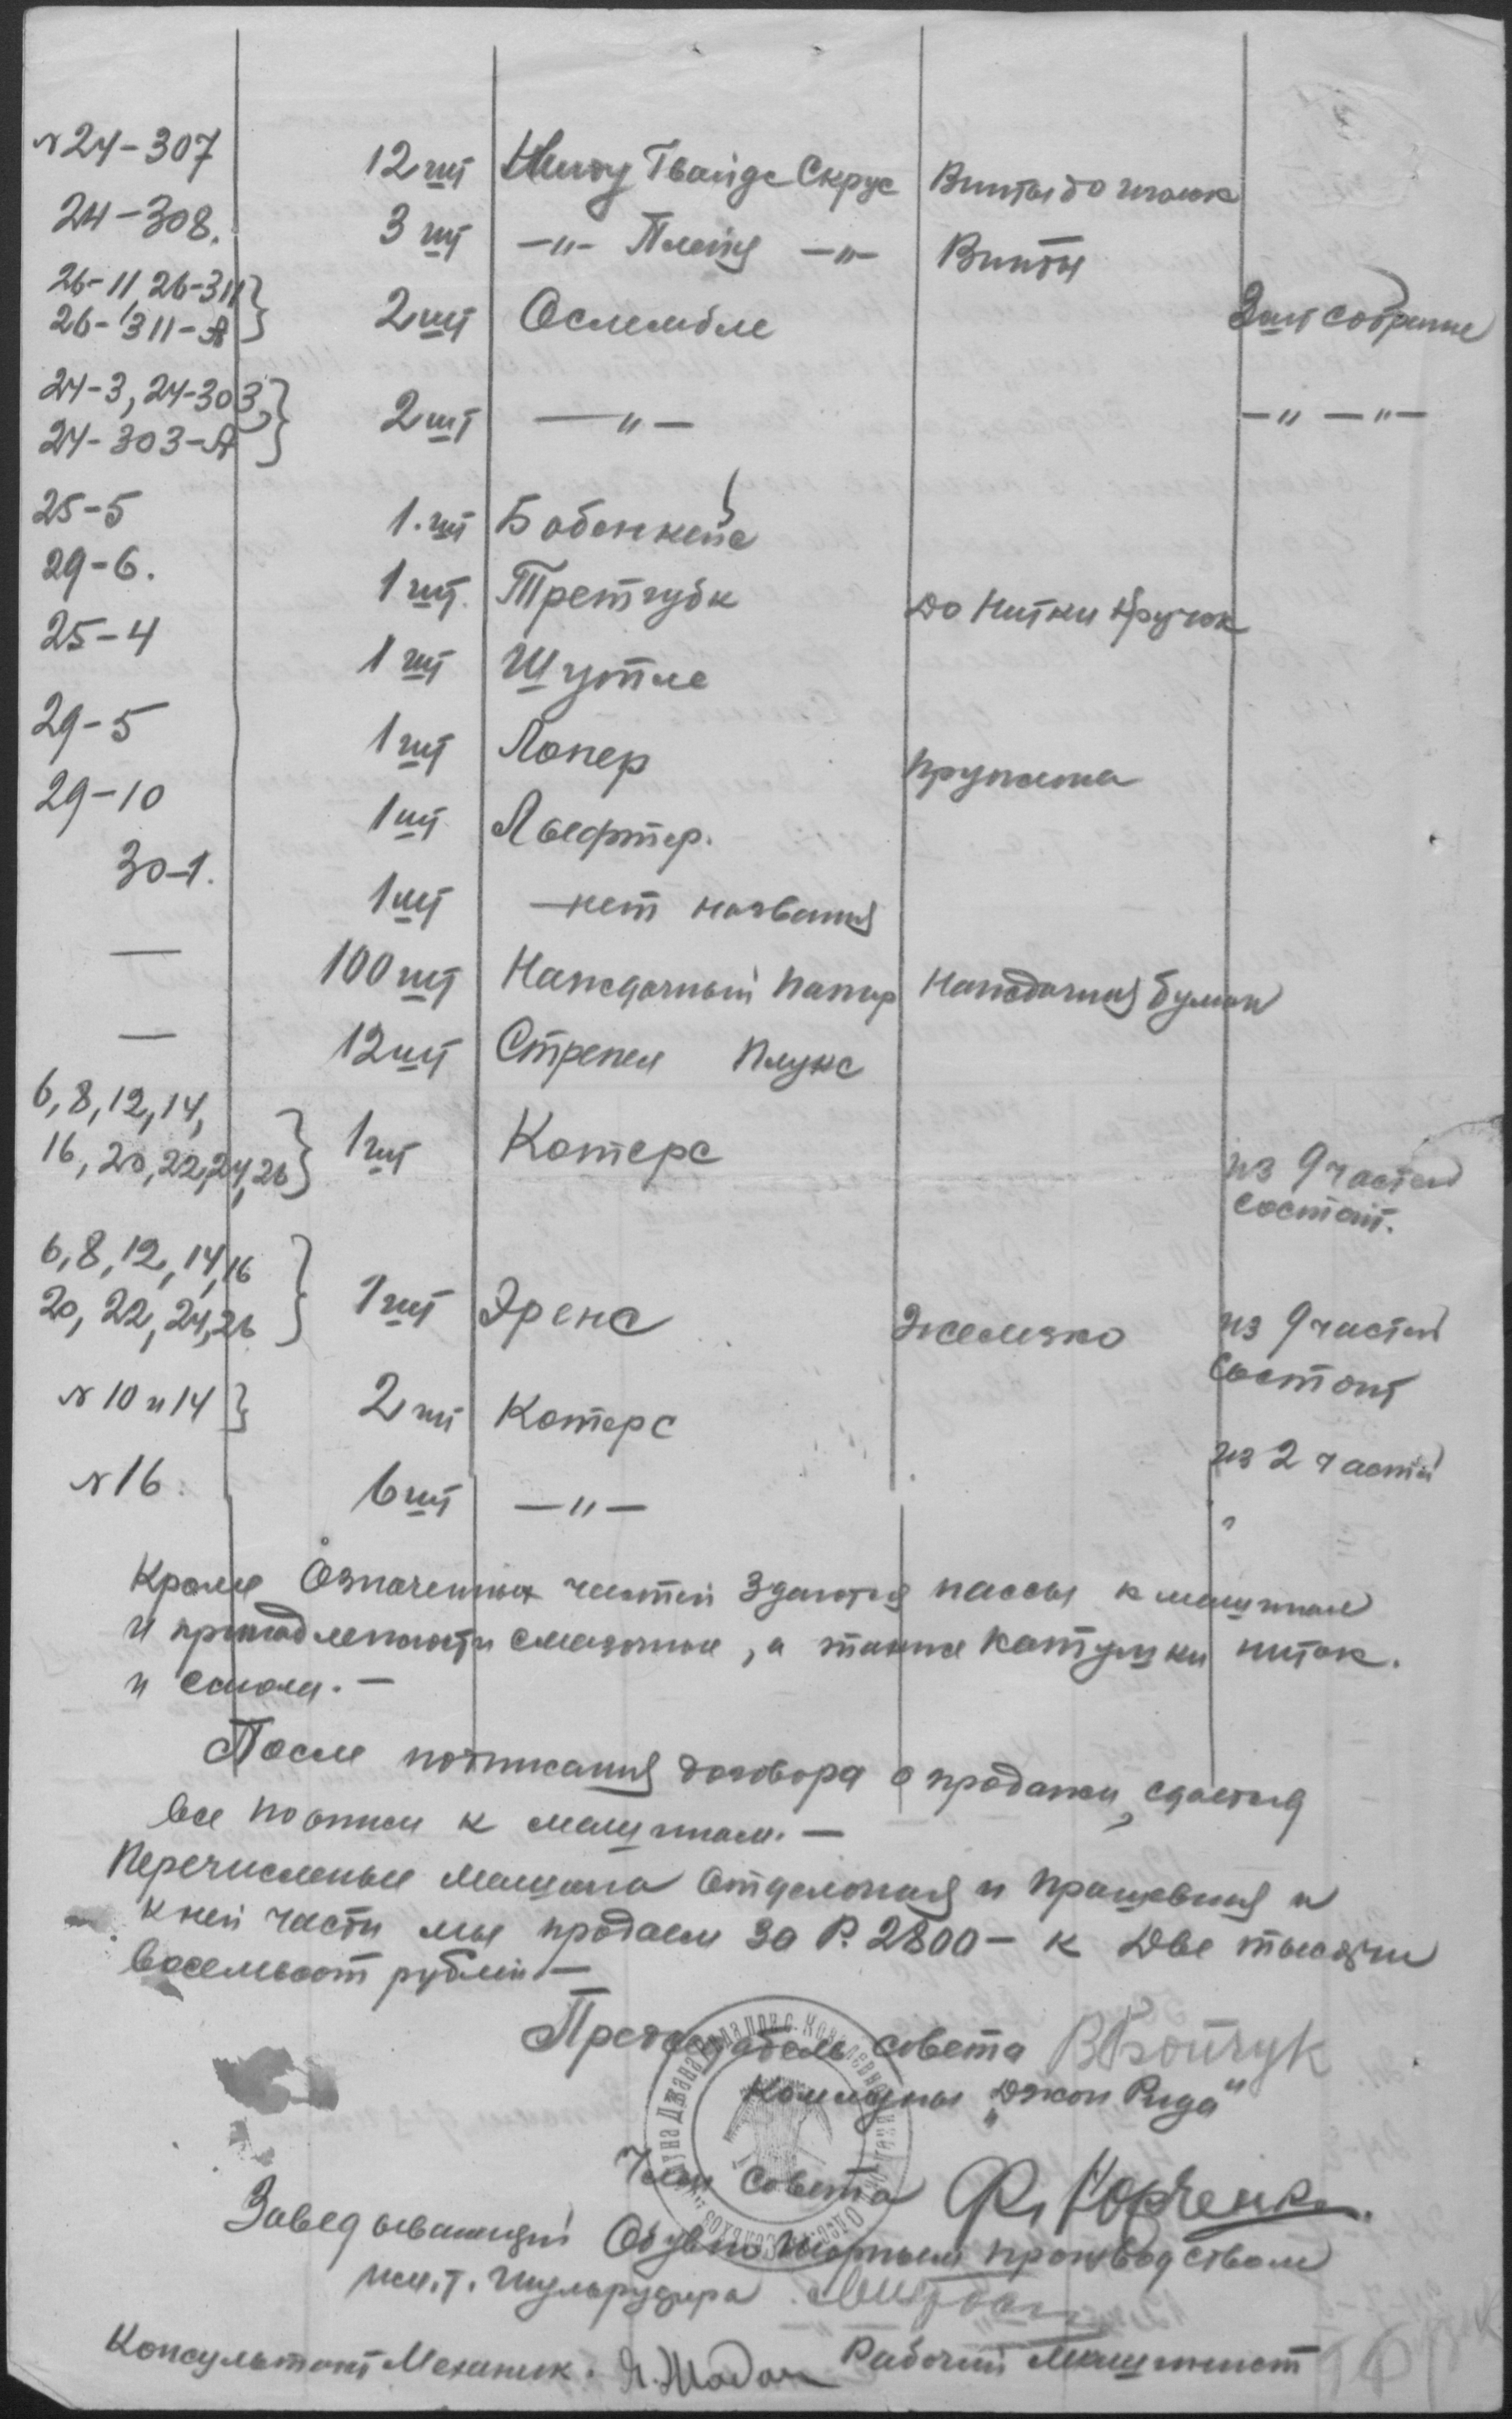 № 24-307 12 шт Гвайдс Скрус Винты до иголок
24-308. 3 шт —"— Плейт —"— Винты
26-11, 26-311
26-311-А } 2 шт Ослембле 2 шт собрание
24-3, 24-303,
24-303-А } 2 шт —"— —"—"—
25-5 1 шт Бобенкейс
29-6. 1 шт. Третгубк До Нитки Кручок
25-4 1 шт Шутпле
29-5 1 шт Лопер Пружина
29-10 1 шт Льефтер.
30-1. 1 шт —нет названия
— 100 шт Наждачный папир Наждачная бумага
— 12 шт Стрепел Плукс
6, 8, 12, 14,
16, 20, 22, 24, 26 } 1 шт Котерс из 9 частей
состоит.
6, 8, 12, 14, 16
20, 22, 24, 26 } 1 шт Эренс Железко из 9 частей
состоит
№ 10 и 14 } 2 шт Котерс из 2 частей
№ 16. 6 шт —"— "
Кроме Означенных частей здаются пассы к машинам
и принадлежности смазочные, а также катушки ниток.
и смола. —
После подписания договора о продажи, сдается
все по описи к машинам. —
Перечисленые машина Отделочная и Прашевная и
к ней части мы продаем за Р. 2800 — к Две тысячи
восемьсот рублей. —
Председатель совета В Бойчук
Коммуны „Джон Рида"
Член Совета Ф. Корченко.
Заведывающий Обувно Шорным производством
им. т. Шульрудгера
Консультант Механик. Я. Жадан Рабочий Машинист